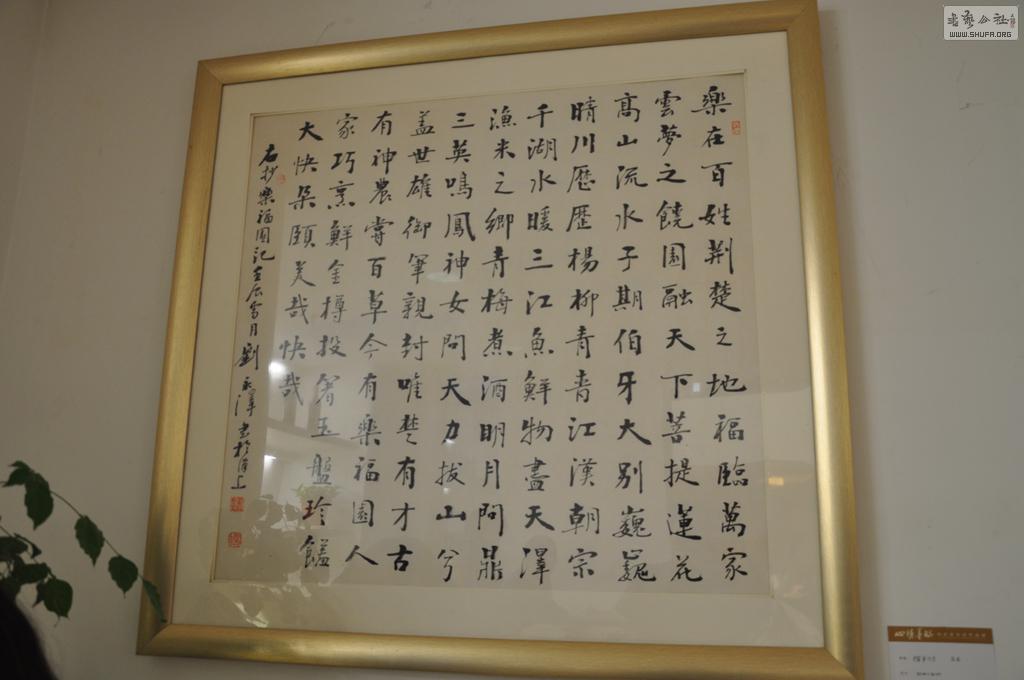 樂在百姓荆楚之地福臨萬家
雲夢之饒園融天下菩提蓮花
高山流水子期伯牙大别巍巍
晴川歷歷楊柳青青江漢朝宗
千湖水暖三江魚鮮物盡天澤
漁米之鄉青梅煮酒明月問鼎
三英鳴鳳神女問天力拔山兮
蓋世雄御軍親封唯楚有才古
有神農嘗百草今有樂福園人
家巧烹鮮金樽投箸玉盤珍饈
大快朵頤美哉快哉
右抄樂福園記壬辰雪月劉永澤書於上
書藝公社
WWW.SHUFA.ORG